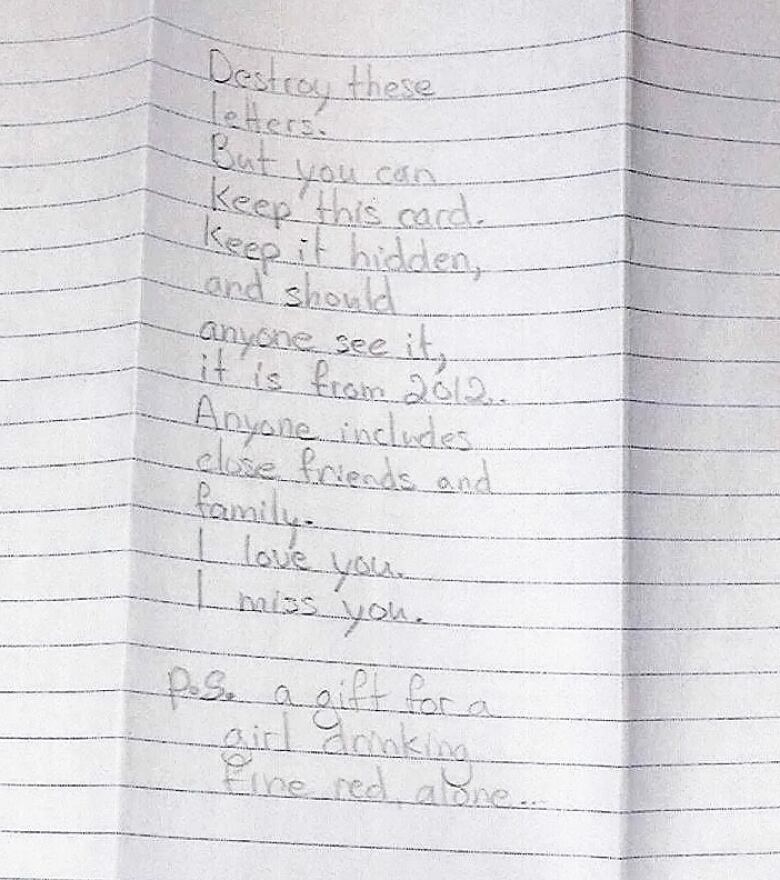 Destroy these
letters.
But you can
keep this card.
Keep it hidden,
and should
anyone see it,
it is from 2012.
Anyone includes
close friends and
family.
I love you.
I miss you.
p.s. a gift for a
girl drinking
fine red, alone...